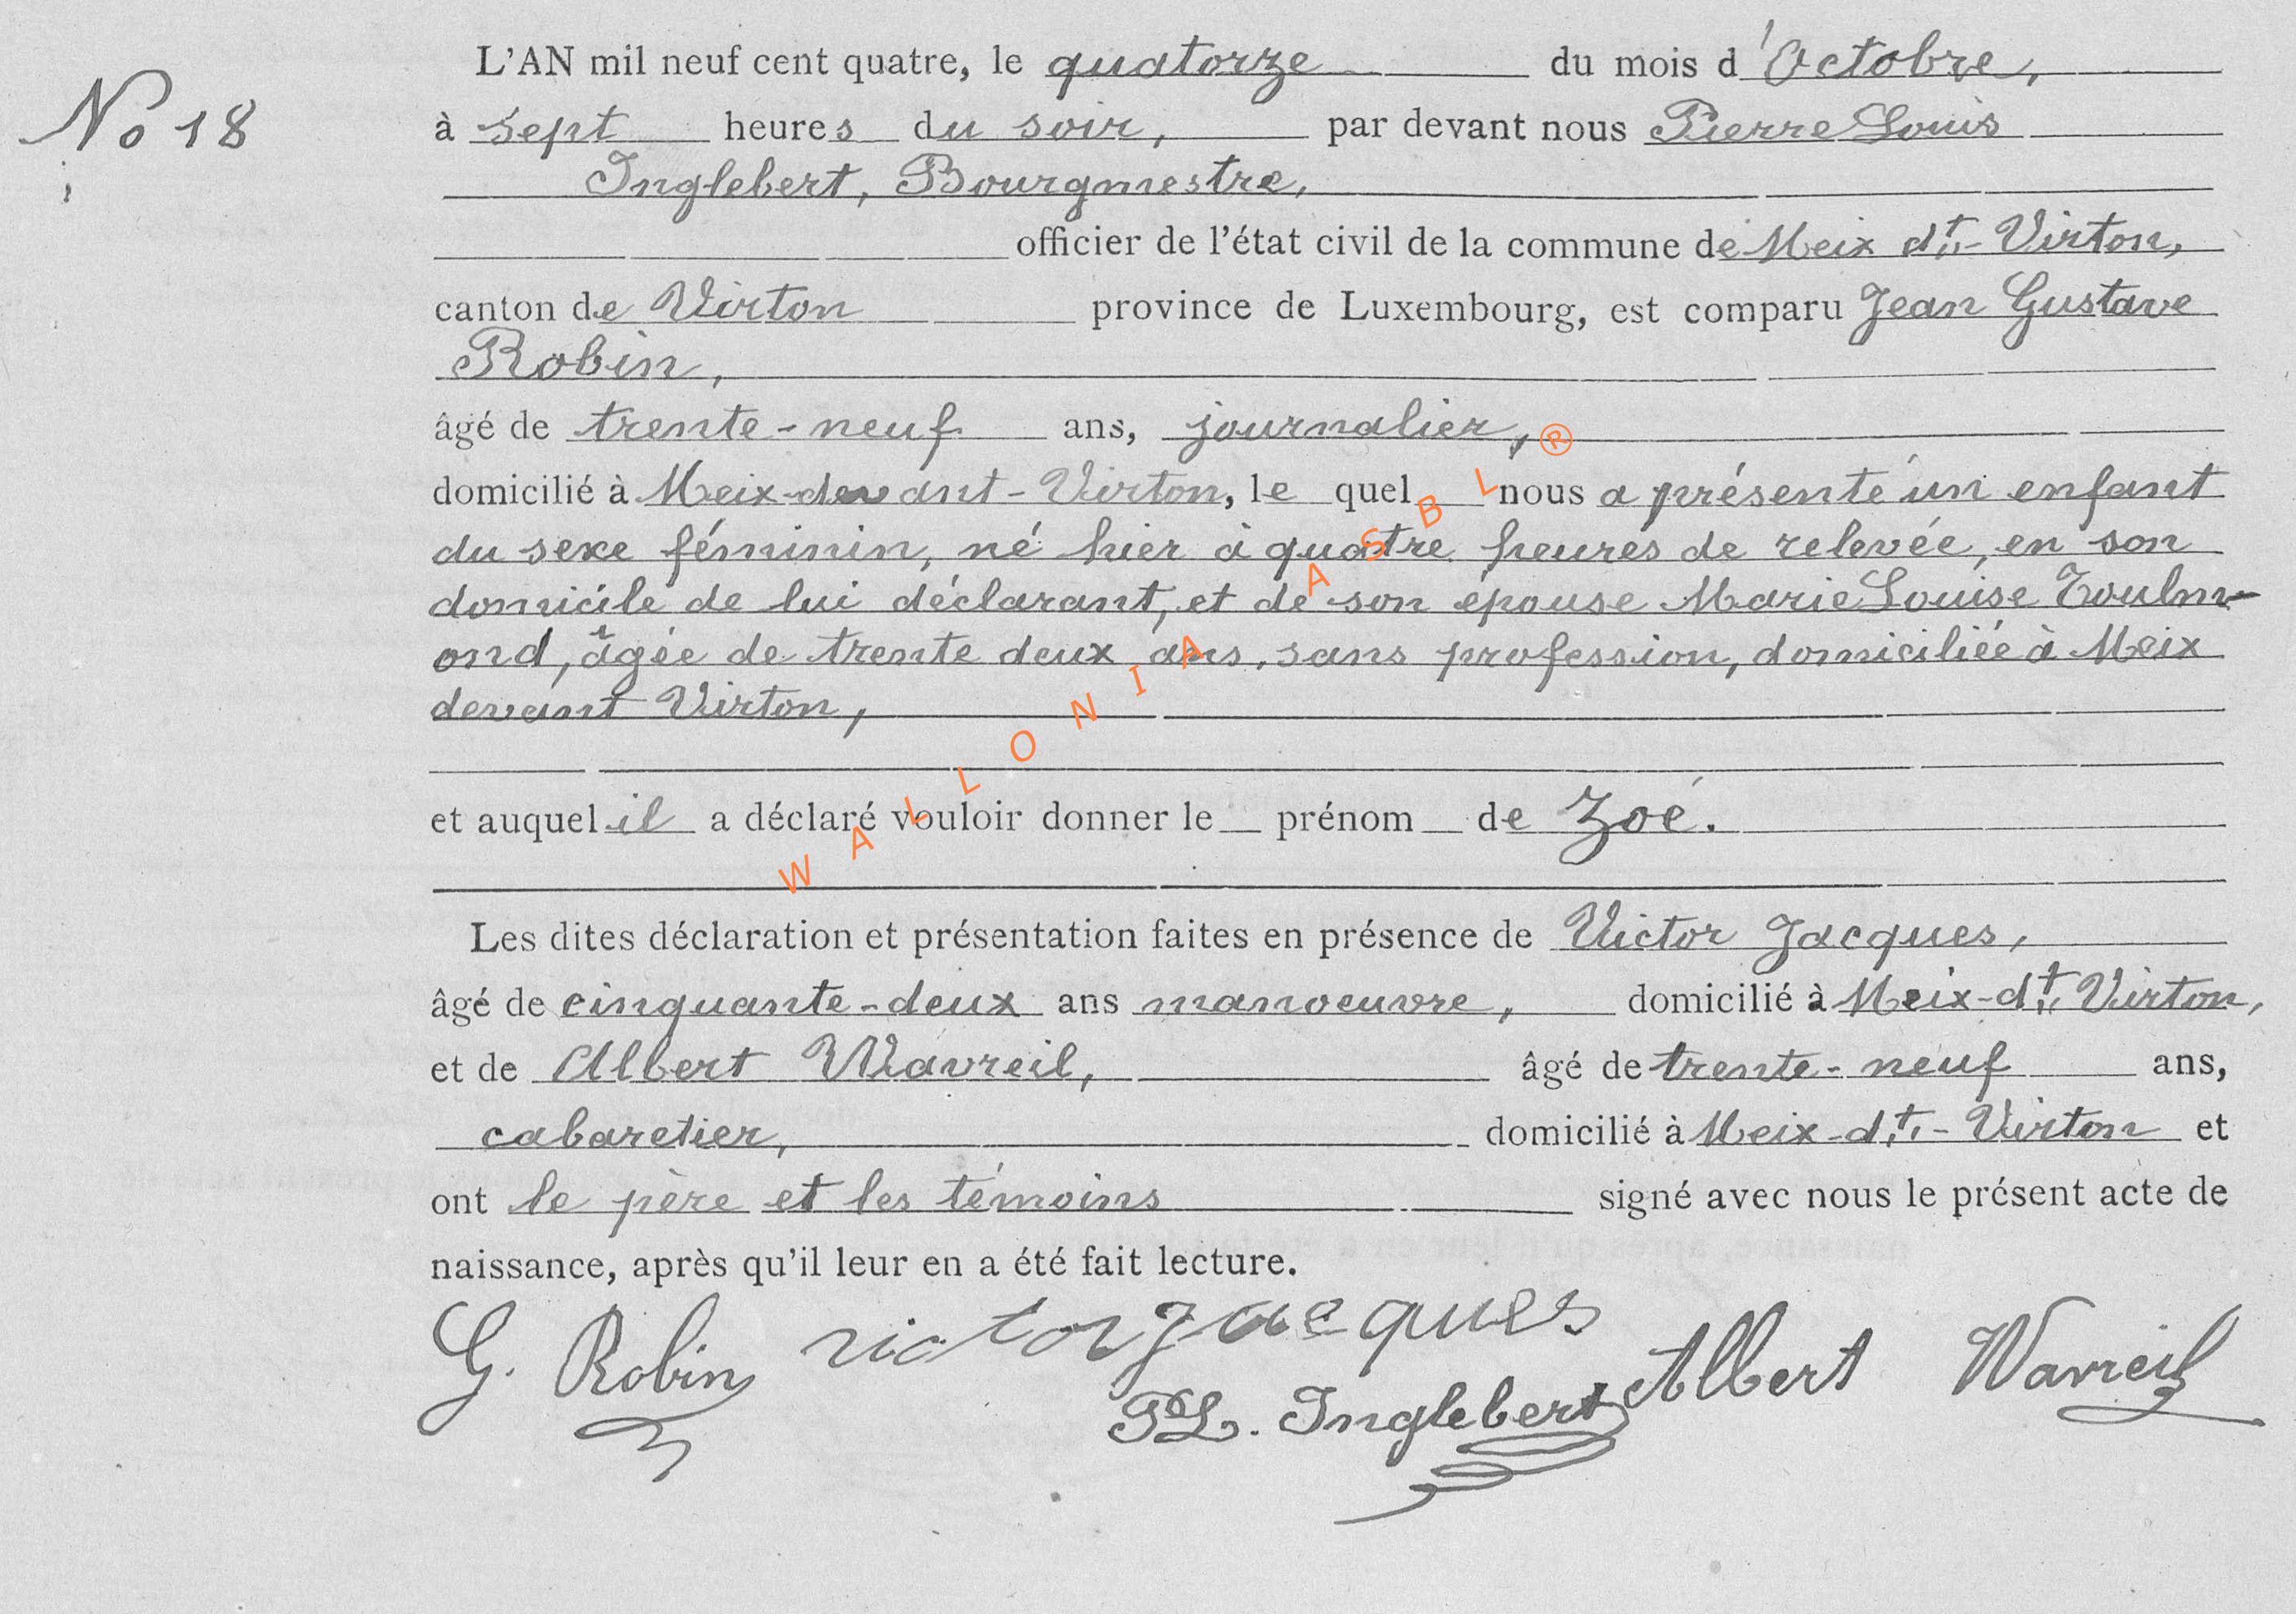 L'AN mil neuf cent quatre, le quatorze du mois d'Octobre,
No 18
à sept heures du soir, par devant nous Pierre Louis
Inglebert, Bourgmestre,
officier de l'état civil de la commune de Meix dt.-Virton,
canton de Virton province de Luxembourg, est comparu Jean Gustave
Robin,
âgé de trente-neuf ans, journalier,
domicilié à Meix-devant-Virton, le quel nous a présenté un enfant
du sexe féminin, né hier à quatre heures de relevée, en son
domicile de lui déclarant, et de son épouse Marie Louise Toulm-
ond, âgée de trente deux ans, sans profession, domiciliée à Meix
devant Virton,
et auquel il a déclaré vouloir donner le prénom de Zoé.
Les dites déclaration et présentation faites en présence de Victor Jacques,
âgé de cinquante-deux ans manoeuvre, domicilié à Meix-dt. Virton,
et de Albert Wavreil, âgé de trente-neuf ans,
cabaretier, domicilié à Meix-dt.-Virton et
ont le père et les témoins signé avec nous le présent acte de
naissance, après qu'il leur en a été fait lecture.
G. Robin victor jacques
PL. Inglebert Albert Wavreil
WALLONIA ASBL ®